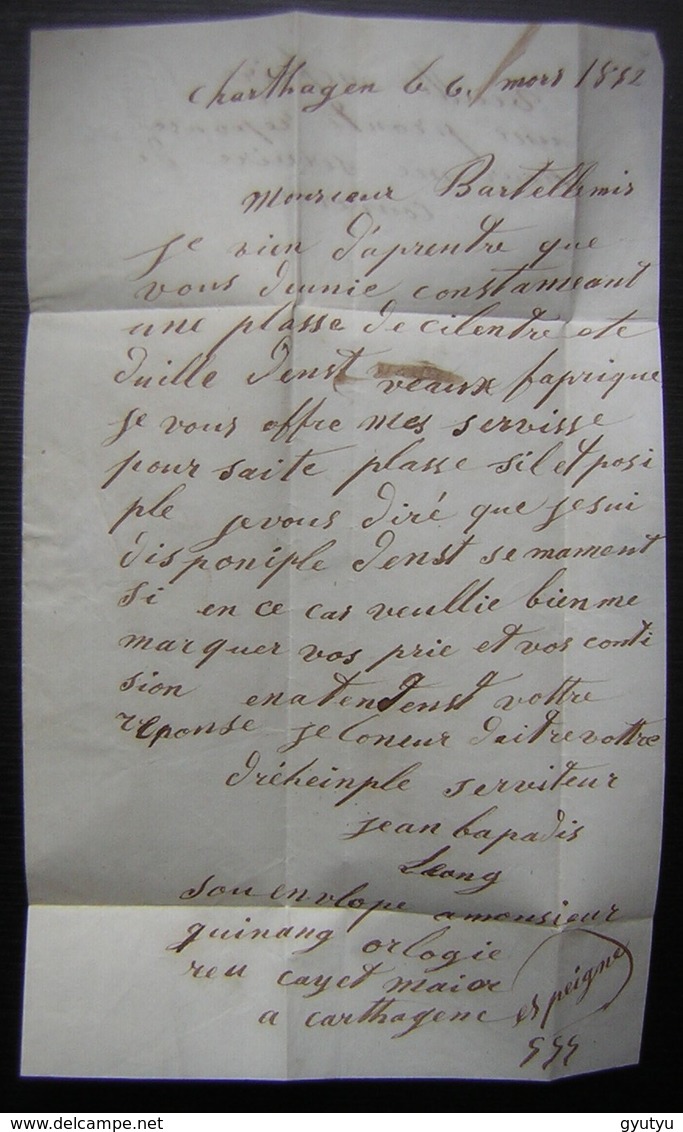 Charthagen le 6 mars 1852
Monsieur Bartellemis
je vien d'aprentre que
vous deunie constameant
une plasse de cilentre ete
duille denst veaux faprique
je vous offre mes servisse
pour saite plasse sil et posi
ple je vous diré que je sui
disponiple denst se mament
si en ce cas veullie bien me
marquer vos prie et vos conti
sion enatendenst vottre
reponse je loneur daitre vottre
dréheinple serviteur
jean bapadis
Leang
sou envlope a monsieur
guinang orlogie
reu cayet maior
a carthagene espeigne
delcampe.net
gyutyu